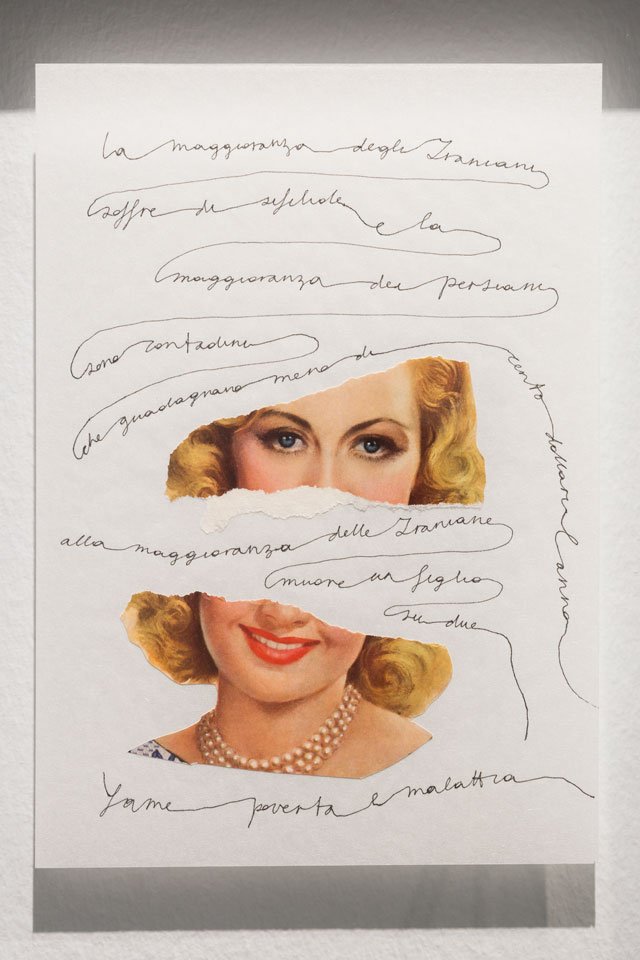 la maggioranza degli Iraniani
soffre di sifilide e la
maggioranza dei persiani
sono contadini
che guadagnano meno di cento dollari l anno
alla maggioranza delle Iraniane
muore un figlio
su due
Fame povertà e malattia